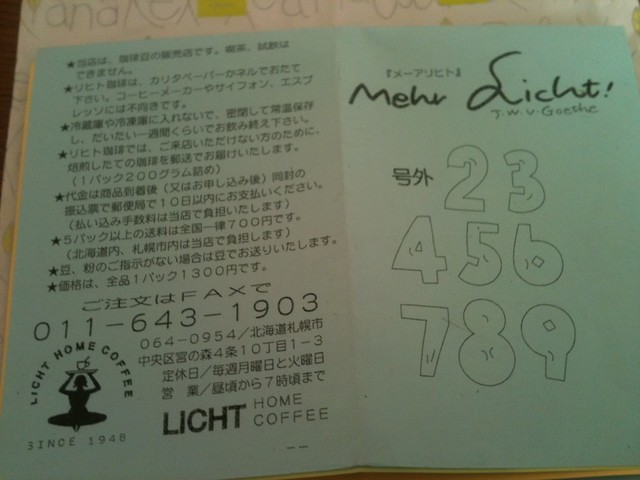 ★当店は、珈琲豆の販売店です。喫茶、試飲は
できません。
★リヒト珈琲は、カリタペーパーかネルでおたて
下さい。コーヒーメーカーやサイフォン、エスプ
レッソには不向きです。
★冷蔵庫や冷凍庫に入れないで、密閉して常温保存
し、だいたい一週間くらいでお飲み終え下さい。
★リヒト珈琲では、ご来店いただけない方のために、
焙煎したての珈琲を郵送でお届けいたします。
(1パック200グラム詰め)
★代金は商品到着後(又はお申し込み後)同封の
振込票で郵便局で10日以内にお支払いください。
(払い込み手数料は当店で負担いたします)
★5パック以上の送料は全国一律700円です。
(北海道内、札幌市内は当店で負担します)
★豆、粉のご指示がない場合は豆でお送りいたします。
★価格は、全品1パック1300円です。
ご注文はFAXで
011-643-1903
064-0954/北海道札幌市
中央区宮の森4条10丁目1-3
定休日/毎週月曜日と火曜日
営 業/昼頃から7時頃まで
LICHT HOME COFFEE
SINCE 1948
LICHT HOME
COFFEE
『メーアリヒト』
Mehr Licht!
J.W.v.Goethe
号外
2 3
4 5 6
7 8 9